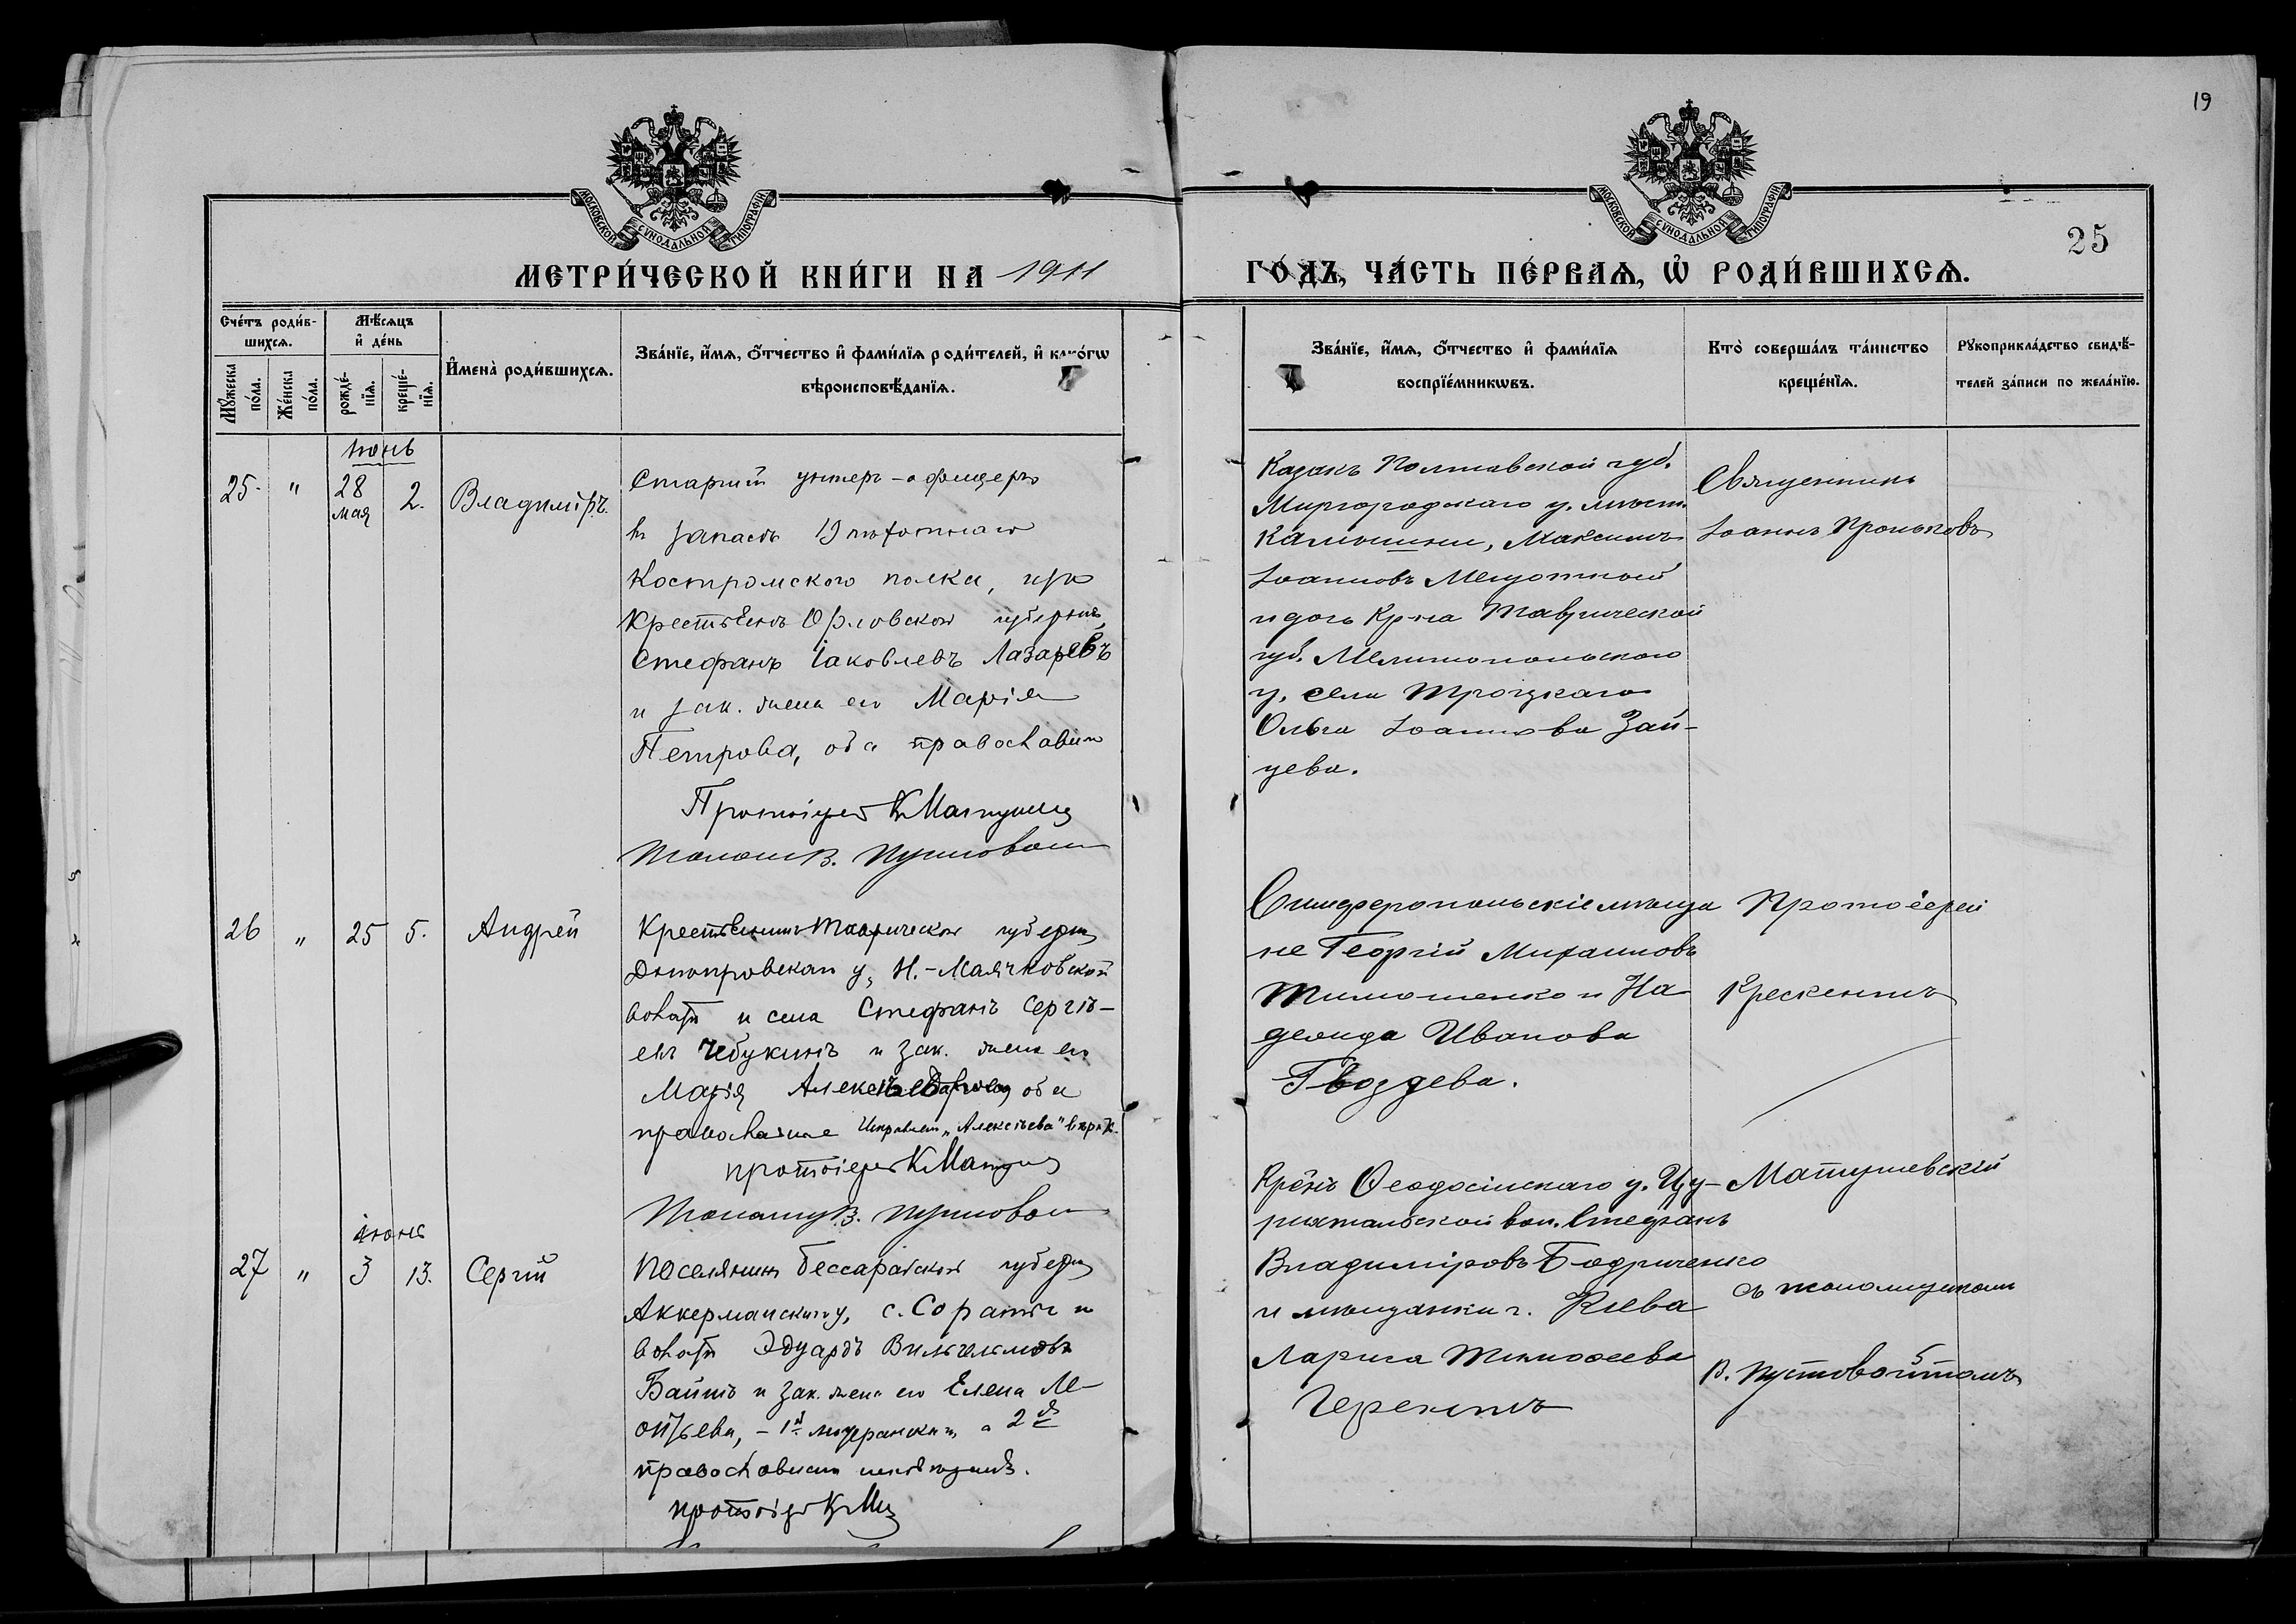 19
МОСКОВСКОЙ СѴНОДАЛЬНОЙ ТИПОГРАФІИ
МОСКОВСКОЙ СѴНОДАЛЬНОЙ ТИПОГРАФІИ
25
МЕТРИ́ЧЕСКОЙ КНИ́ГИ НА 1911
ГО́ДЪ, ЧА́СТЬ ПЕ́РВАѦ, Ѡ҆ РОДИ́ВШИХСѦ.
Сче́тъ роди́в-
шихсѧ.
Мꙋ́жеска по́ла.
Же́нска по́ла.
Мѣ́сѧцъ
и҆ де́нь
рожде́-
нїѧ.
креще́-
нїѧ.
И҆мена̀ роди́вшихсѧ.
Зва́нїе, и҆́мѧ, ѻ҆́тчество и҆ фами́лїѧ роди́телей, и҆ како́гѡ
вѣроисповѣ́данїѧ.
Зва́нїе, и҆́мѧ, ѻ҆́тчество и҆ фами́лїѧ
воспрїе́мникѡвъ.
Кто̀ соверша́лъ та́инство
креще́нїѧ.
Рꙋкоприкла́дство свидѣ́-
телей за́писи по жела́нїю.
Іюнь
25. " 28 мая 2. Владиміръ.
Старшій унтеръ-офицеръ
въ запасѣ 19 пѣхотнаго
Костромского полка, изъ
Крестьянъ Орловской губерніи,
Стефанъ Іаковлевъ Лазаревъ
и зак. жена его Марія
Петрова, оба православные
Протоіерей К Матушев
Псаломщ. В. Пустовой
Казакъ Полтавской губ.
Миргородскаго у. мѣст.
Камышни, Максимъ
Іоанновъ
и дочь Кр-на Таврической
губ. Мелитопольскаго
у. села Троицкаго
Ольга Іоаннова Зай-
цева.
Священникъ
Іоаннъ Проньковъ
26 " 25 5. Андрей
Крестьянинъ Таврической губерніи
Днѣпровскаго у, Н.-Маячковской
волости и села Стефанъ Сергіе-
евъ Чебукинъ и зак. жена его
Марія оба
православные Исправлен. „Алексѣева" вѣрно.
протоіерей К Матуш
Псаломщ В. Пустовой
Симферопольскіе мѣща
не Георгій Михаиловъ
Тимошенко и На
дежда Иванова
Гвоздева.
Протоіерей
Крескентъ
Матушевскій
съ псаломщикомъ
В. Пустовойтомъ
іюнь
27 " 3 13. Сергій
Поселянинъ Бессарабской губерніи
Аккерманскаго у, с. Сараты и
волости Эдуардъ Вильгельмовъ
и зак. жена его Елена Ле-
онтьева, - 1й лютеранскаго, а 2я
православнаго исповѣданій.
протоіер К М
Кр-нъ Ѳеодосійскаго у. Цу-
рихтальской вол. Стефанъ
Владиміровъ Бодриченко
и мѣщанка г. Кіева
Лариса Тимоѳеева